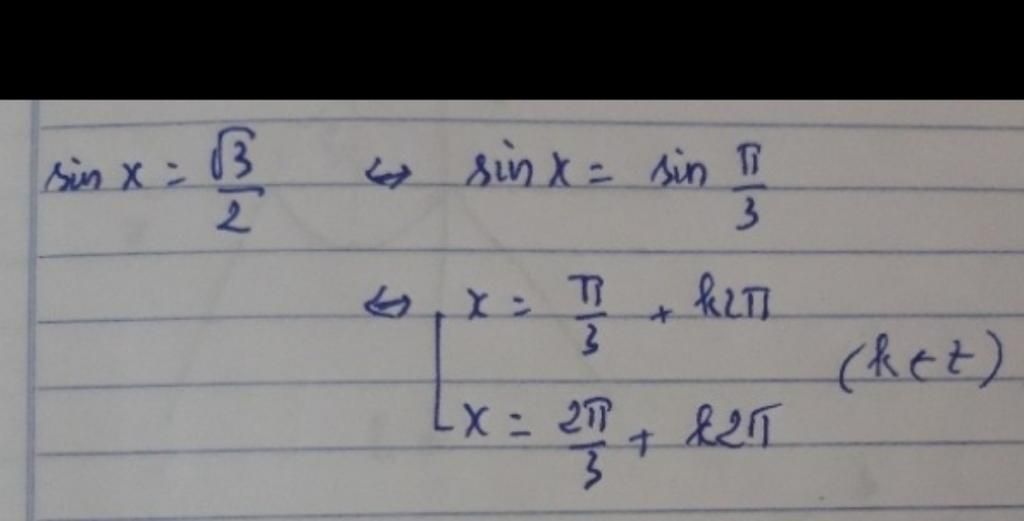 sin x = √3/2 ⇔ sin x = sin π/3
⇔ [ x = π/3 + k2π
(k ∈ Z)
x = 2π/3 + k2π